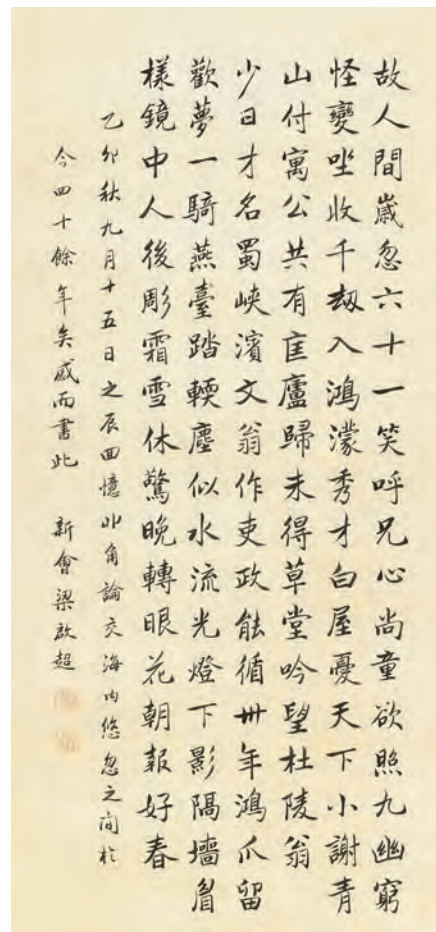 故人間歲忽六十一笑呼兄心尚童欲照九幽窮
怪變坐收千劫入鴻濛秀才白屋憂天下小謝青
山付寓公共有匡廬歸未得草堂吟望杜陵翁
少日才名蜀峽濱文翁作吏政能循卅年鴻爪留
歡夢一騎燕臺踏輭塵似水流光燈下影隔墻眉
樣鏡中人後彫霜雪休驚晚轉眼花朝報好春
乙卯秋九月十五日之辰回憶丱角論交海內悠忽之間於
今四十餘年矣感而書此 新會梁啟超